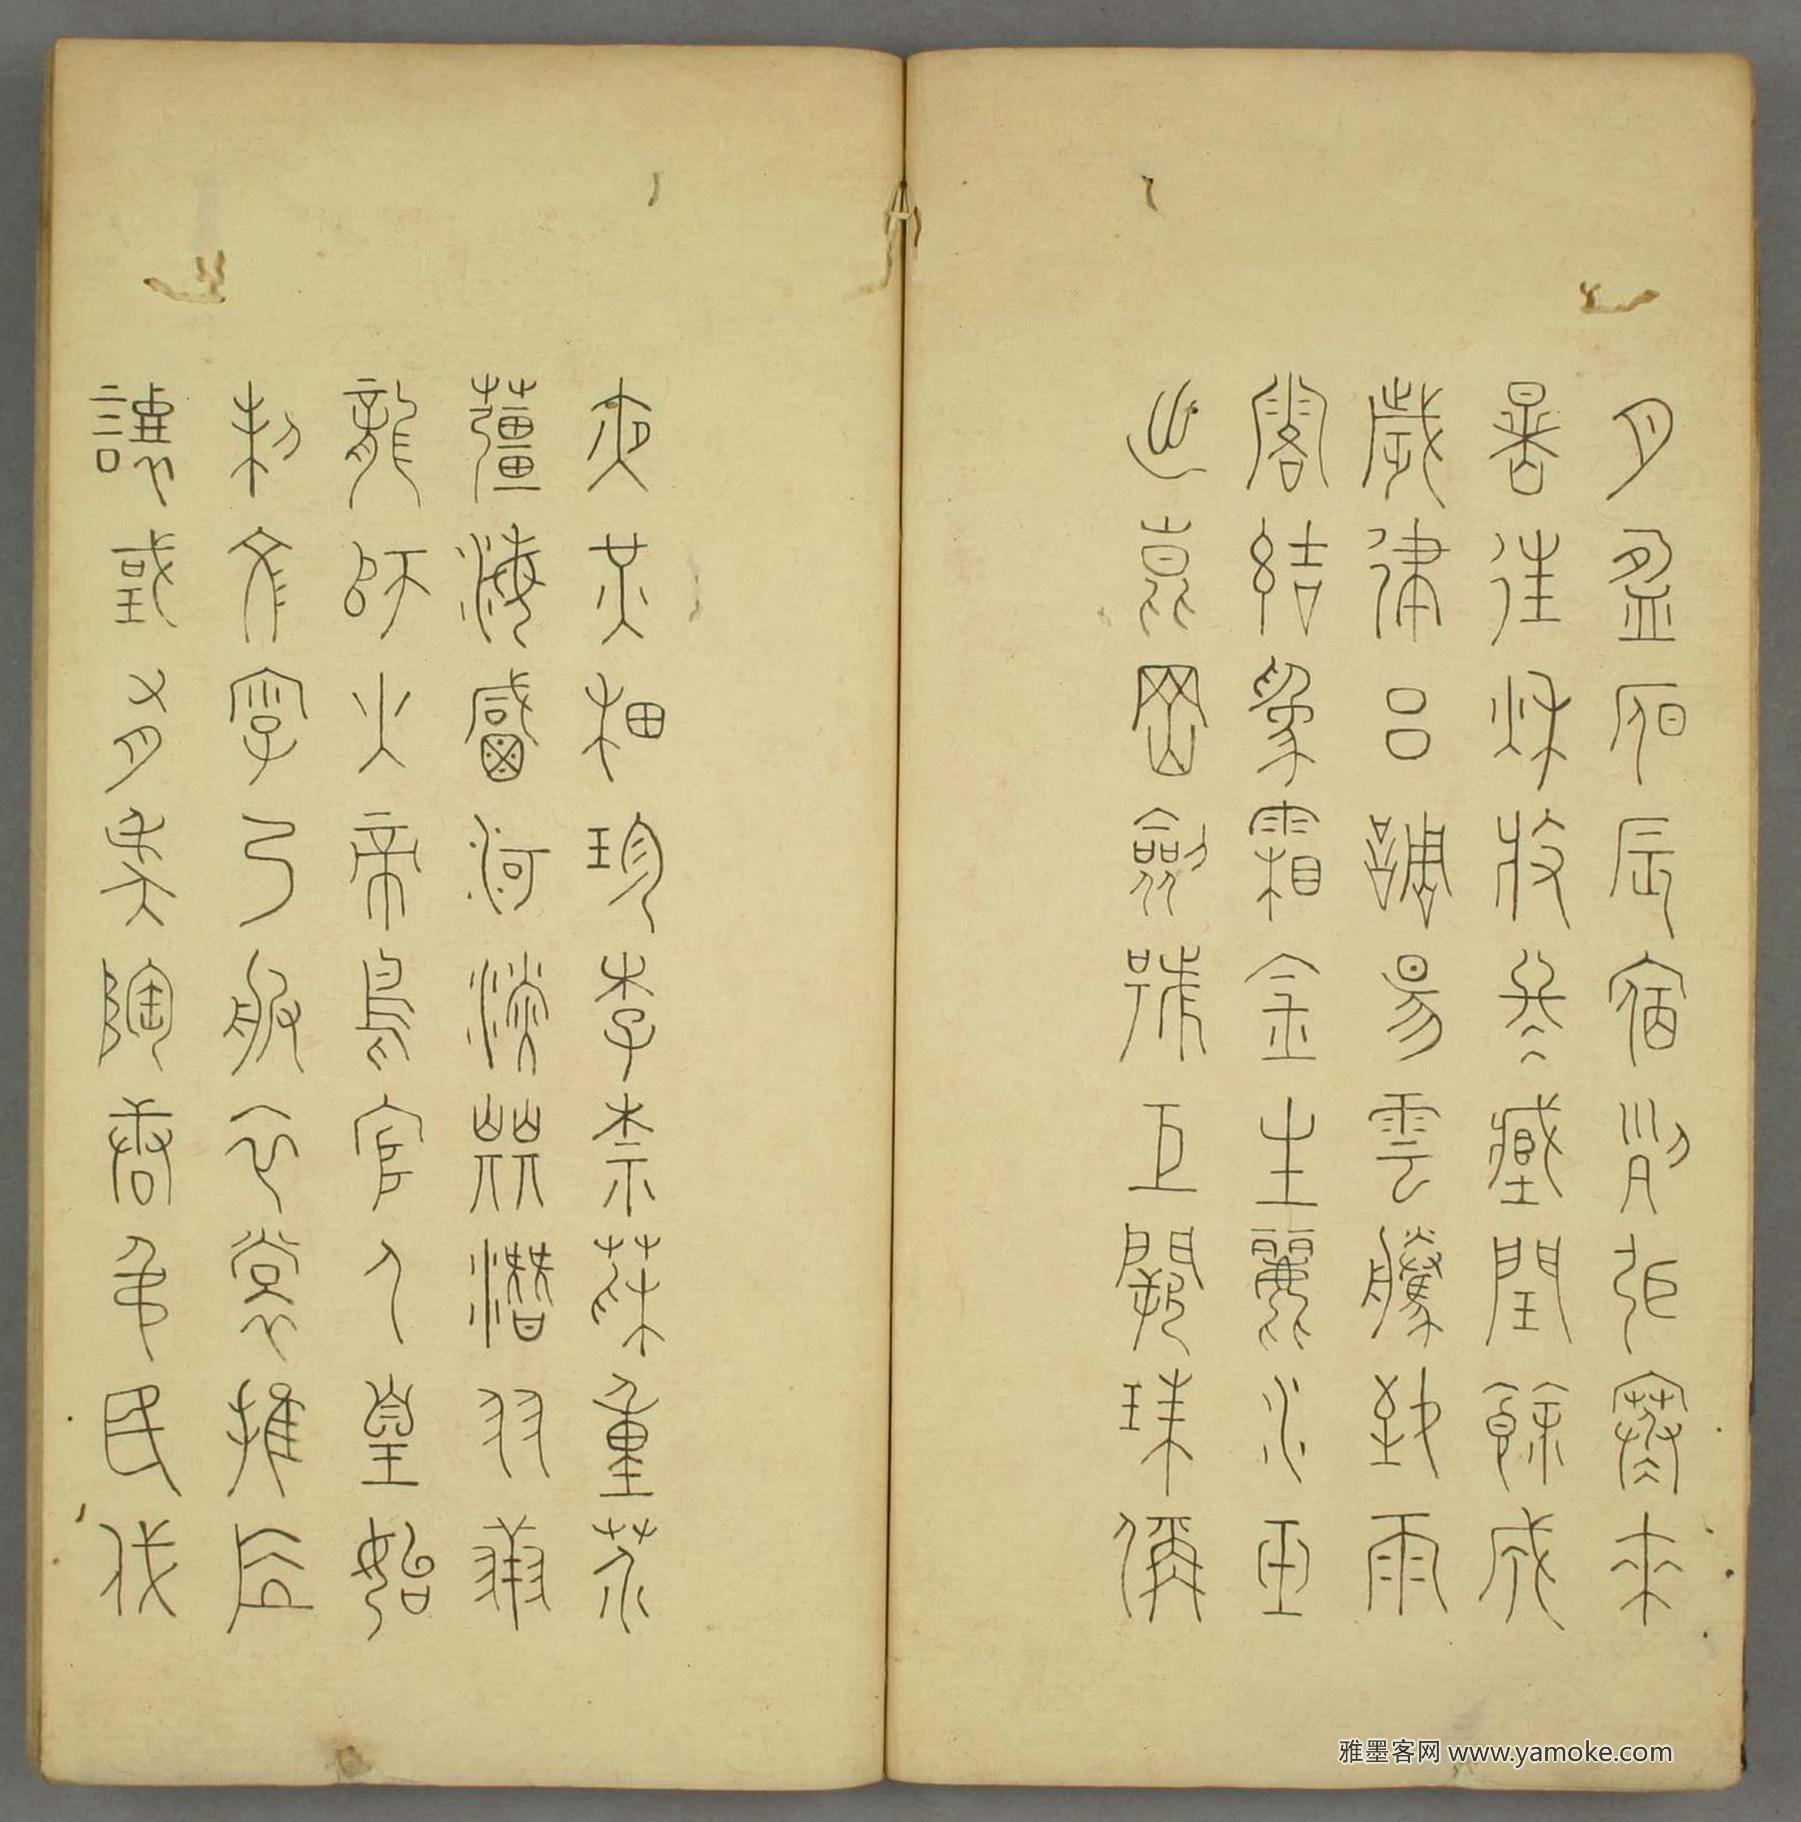 月盈昃辰宿列張寒來
暑往秋收冬藏閏餘成
歲律呂調陽雲騰致雨
露結為霜金生麗水玉
出崑岡劍號巨闕珠稱
夜光果珍李柰菜重芥
薑海鹹河淡鱗潛羽翔
龍師火帝鳥官人皇始
制文字乃服衣裳推位
讓國有虞陶唐弔民伐
雅墨客网 www.yamoke.com